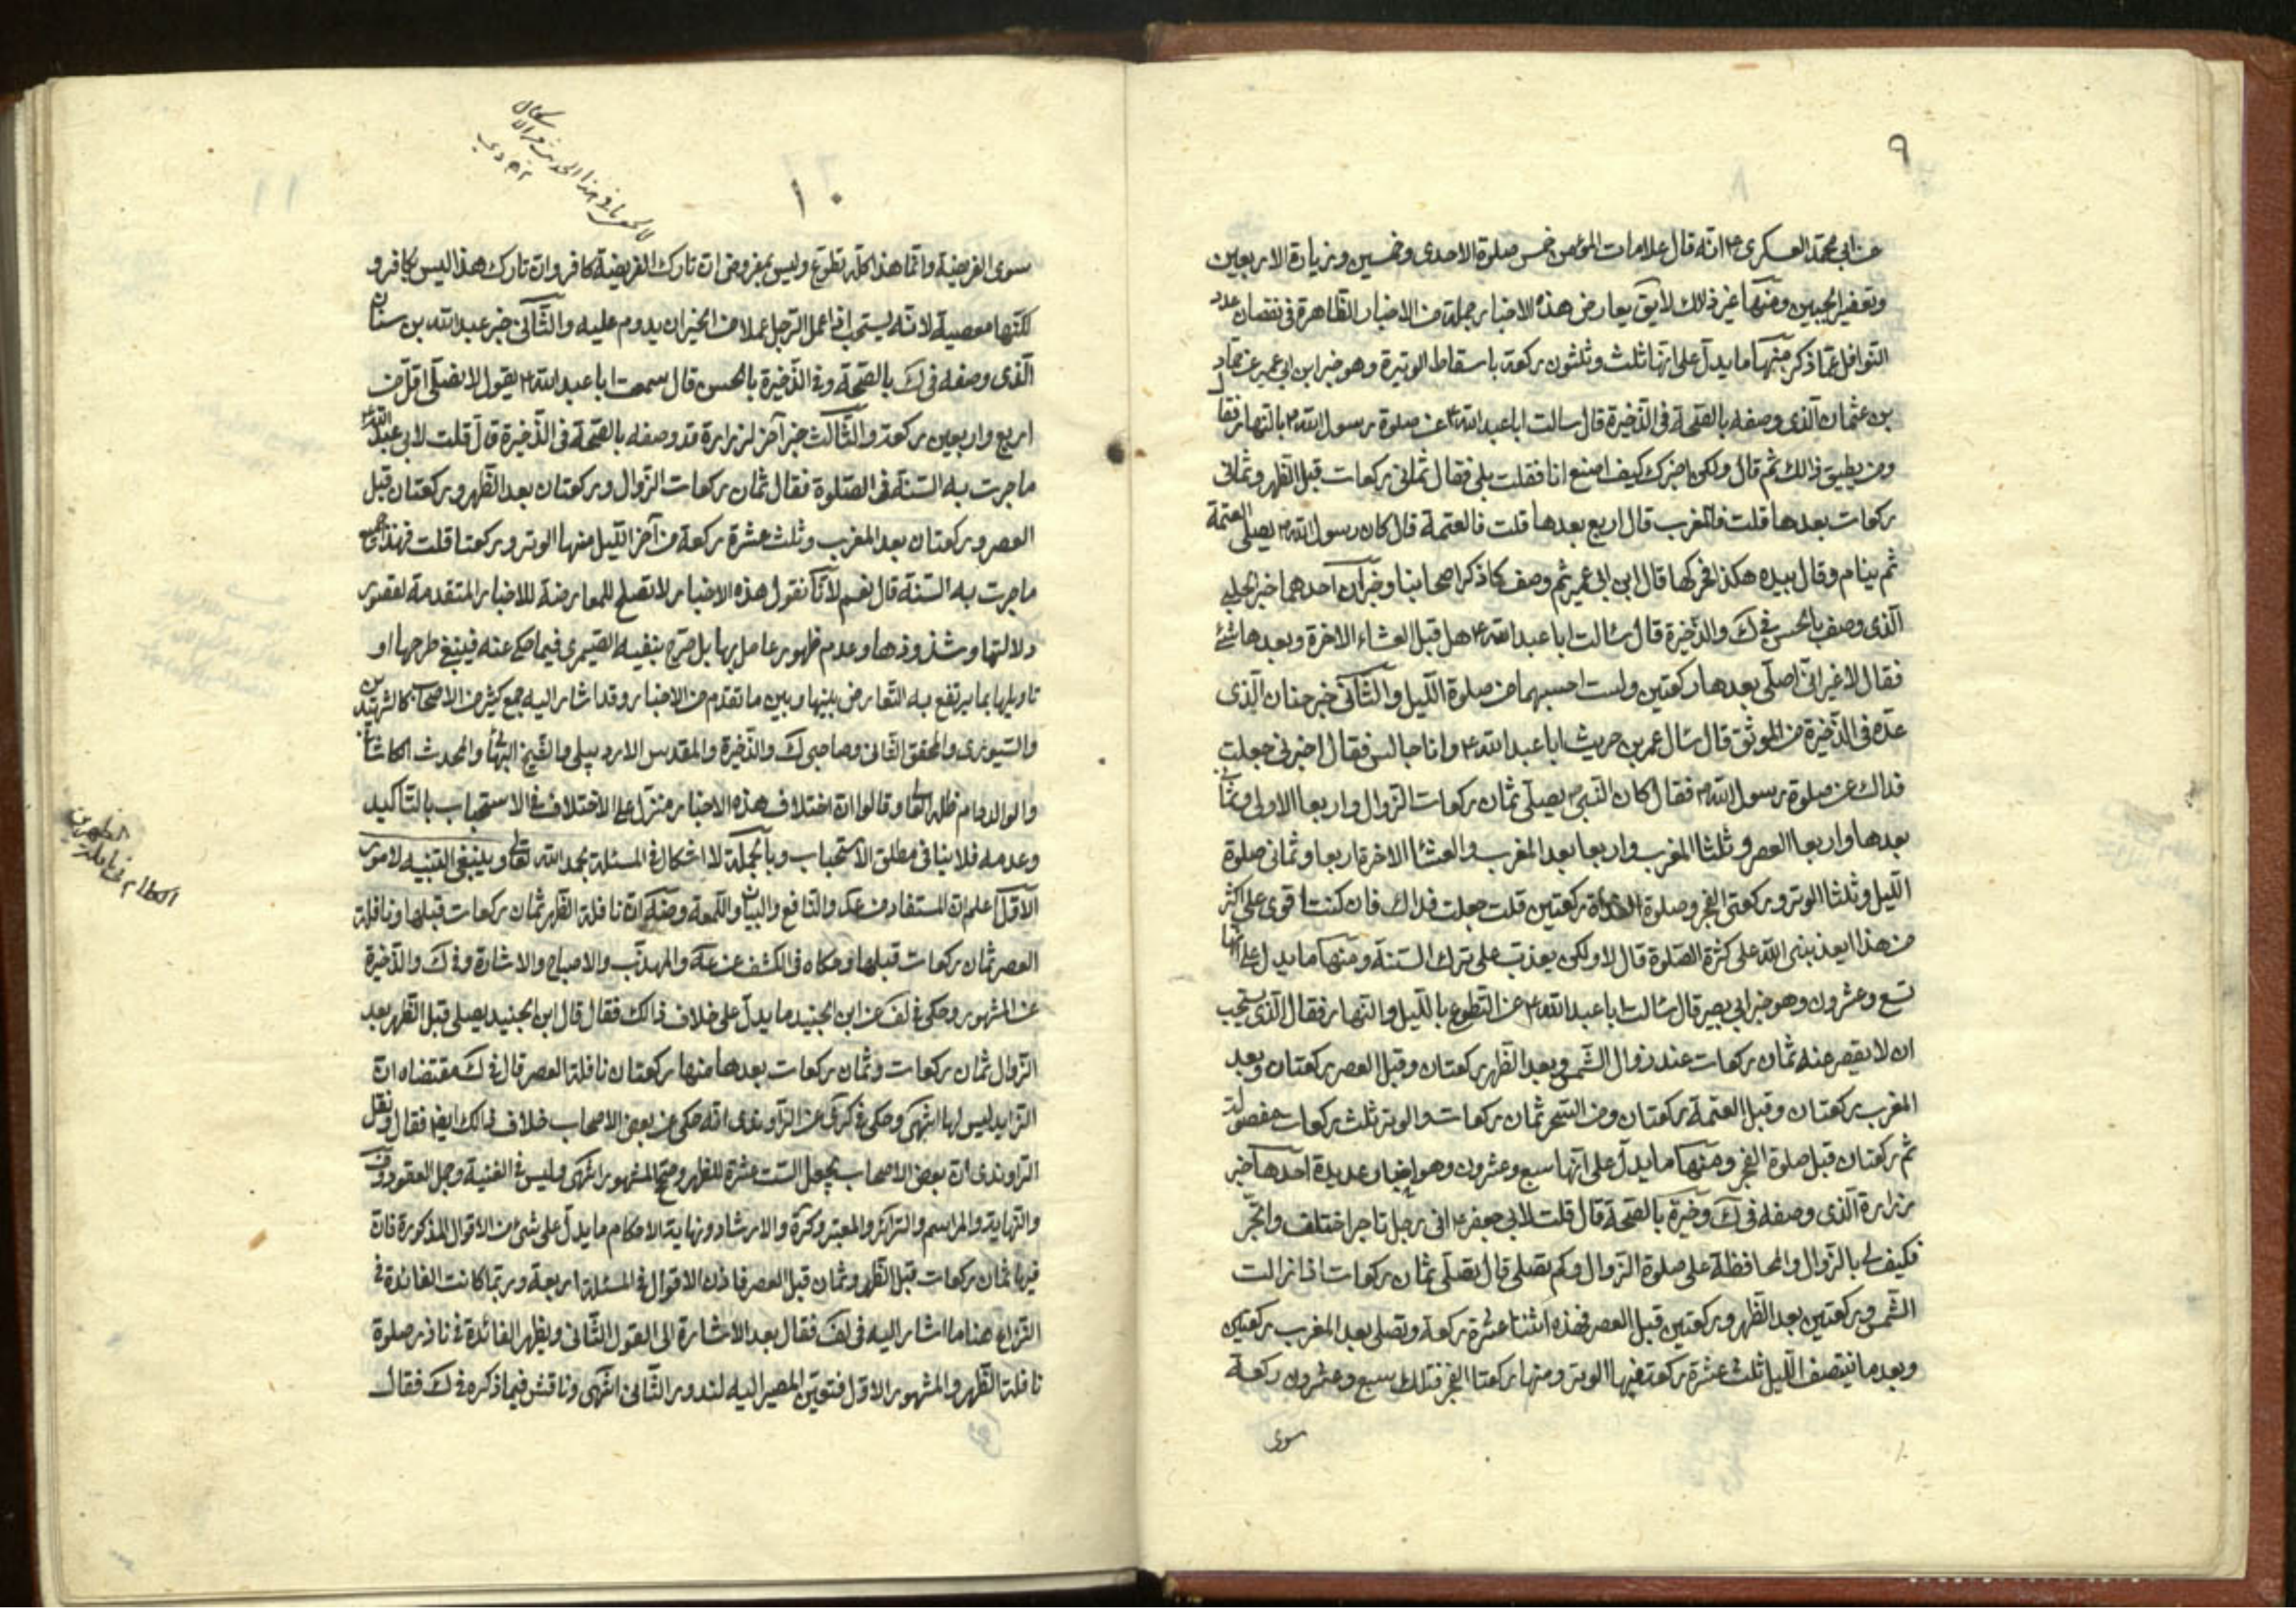 ٩
عن ابي محمد العسكرى ع انه قال علامات المؤمن خمس صلوة الاحدى وخمسين وزيارة الاربعين
وتعفير الجبين ومنها غير ذلك لايق يعارض هذه الاخبار جملة من الاخبار الظاهرة فى نقصان عدد
النوافل عما ذكر منها ما يدل على انها ثلث وثلثون ركعة باسقاط الوتيرة وهو خبر ابن ابي عمير عن حماد
بن عثمان الذى وصفه بالصحة فى الذخيرة قال سالت ابا عبد الله ع عن صلوة رسول الله ص بالنهار فقال
ومن يطيق ذلك ثم قال ولكن اخبرك كيف اصنع انا فقلت بلى فقال ثمانى ركعات قبل الظهر وثمانى
ركعات بعدها قلت فالمغرب قال اربع بعدها قلت فالعتمة قال كان رسول الله ص يصلى العتمة
ثم ينام وقال بيده هكذا فحركها قال ابن ابي عمير ثم وصف كما ذكر اصحابنا وخبران احدهما خبر الحلبي
الذى وصف بالحسن فى ك والذخيرة قال سئالت ابا عبد الله ع هل قبل العشاء الاخرة وبعدها شئ
فقال لا غير انى اصلى بعدها ركعتين ولست احسبهما من صلوة الليل والثانى خبر حنان الذى
عده فى الذخيرة من الموثق قال سال عمر بن حريث ابا عبد الله ع وانا جالس فقال اخبرنى جعلت
فداك عن صلوة رسول الله ص فقال كان النبى ص يصلى ثمان ركعات الزوال واربعا الاولى وثمان
بعدها واربعا العصر وثلثا المغرب واربعا بعد المغرب والعشا الاخرة اربعا وثمانى صلوة
الليل وثلثا الوتر وركعتى الفجر وصلوة الغداة ركعتين قلت جعلت فداك فان كنت اقوى على اكثر
من هذا ايعذبنى الله على كثرة الصلوة قال لا ولكن يعذب على ترك السنة ومنها ما يدل على انها
تسع وعشرون وهو خبر ابي بصير قال سئالت ابا عبد الله ع عن التطوع بالليل والنهار فقال الذى يستحب
ان لا يقصر منه ثمان ركعات عند زوال الشمس وبعد الظهر ركعتان وقبل العصر ركعتان وبعد
المغرب ركعتان وقبل العتمة ركعتان ومن السحر ثمان ركعات والوتر ثلث ركعات مفصولة
ثم ركعتان قبل صلوة الفجر ومنها ما يدل على انها سبع وعشرون وهو اخبار عديدة احدها خبر
زرارة الذى وصفه فى ك وخيرة بالصحة قال قلت لابي جعفر ع انى رجل تاجر اختلف واتجر
فكيف لى بالزوال والمحافظة على صلوة الزوال وكم تصلى قال تصلى ثمان ركعات اذا زالت
الشمس وركعتين بعد الظهر وركعتين قبل العصر فهذه اثنتا عشرة ركعة وتصلى بعد المغرب ركعتين
وبعد ما ينتصف الليل ثلث عشرة ركعة منها الوتر ومنها ركعتا الفجر فتلك سبع وعشرون ركعة
سوى
١٠
سوى الفريضة وانما هذا كله تطوع وليس بمفروض ان تارك الفريضة كافر وان تارك هذا ليس بكافر و
لكنها معصية لانه يستحب اذا عمل الرجل عملا من الخير ان يدوم عليه والثانى خبر عبد الله بن سنان
الذى وصفه فى ك بالصحة وفى الذخيرة بالحسن قال سمعت ابا عبد الله ع يقول لا تصلى اقل من
اربع واربعين ركعة والثالث خبر آخر لزرارة قد وصفه بالصحة فى الذخيرة قال قلت لابي عبد الله ع
ما جرت به السنة فى الصلوة فقال ثمان ركعات الزوال وركعتان بعد الظهر وركعتان قبل
العصر وركعتان بعد المغرب وثلث عشرة ركعة من آخر الليل منها الوتر وركعتا قلت فهذا جميع
ما جرت به السنة قال نعم لانا نقول هذه الاخبار لا تصلح للمعارضة للاخبار المتقدمة لقصور
دلالتها وشذوذها وعدم ظهور عامل بها بل صرح بنفيه الصيمرى فيما حكى عنه فينبغى طرحها او
تاويلها بما يرتفع به التعارض بينها وبين ما تقدم من الاخبار وقد اشار اليه جمع كثير من الاصحاب كالشهيدين
والسيورى والمحقق الثانى وصاحبى ك والذخيرة والمقدس الاردبيلى والشيخ البهائى والمحدث الكاشانى
والوالد دام ظله العالى وقالوا ان اختلاف هذه الاخبار منزل على الاختلاف فى الاستحباب بالتاكيد
وعدمه فلا ينافى مطلق الاستحباب وبالجملة لا اشكال فى المسئلة بحمد الله تعالى وينبغى التنبيه لامور
الاول اعلم ان المستفاد من والنافع والبيان واللمعة وضة ان نافلة الظهر ثمان ركعات قبلها ونافلة
العصر ثمان ركعات قبلها وحكاه فى الكشف عن والمهذب والاصباح والاشارة وفى ك والذخيرة
عن المشهور وحكى فى لف عن ابن الجنيد ما يدل على خلاف ذلك فقال قال ابن الجنيد يصلى قبل الظهر بعد
الزوال ثمان ركعات وثمان ركعات بعدها منها ركعتان نافلة العصر قال فى ك مقتضاه ان
الزايد ليس لها انتهى وحكى فى كرى عن الراوندى انه حكى عن بعض الاصحاب خلاف ذلك ايضا فقال ونقل
الراوندى ان بعض الاصحاب يجعل الست عشرة للظهر وصح المشهور انتهى وليس فى الغنية وجمل العقود وف
والنهاية والمراسم والسرائر والمعتبر وكرة والارشاد ونهاية الاحكام ما يدل على شئ من الاقوال المذكورة فان
فيها ثمان ركعات قبل الظهر وثمان قبل العصر فاذن الاقوال فى المسئلة اربعة وربما كانت الفائدة فى
النزاع هنا ما اشار اليه فى لف فقال بعد الاشارة الى القول الثانى ويظهر الفائدة فى ناذر صلوة
نافلة الظهر والمشهور الاول فتعين المصير اليه لندور الثانى انتهى وناقش فيما ذكره فى ك فقال